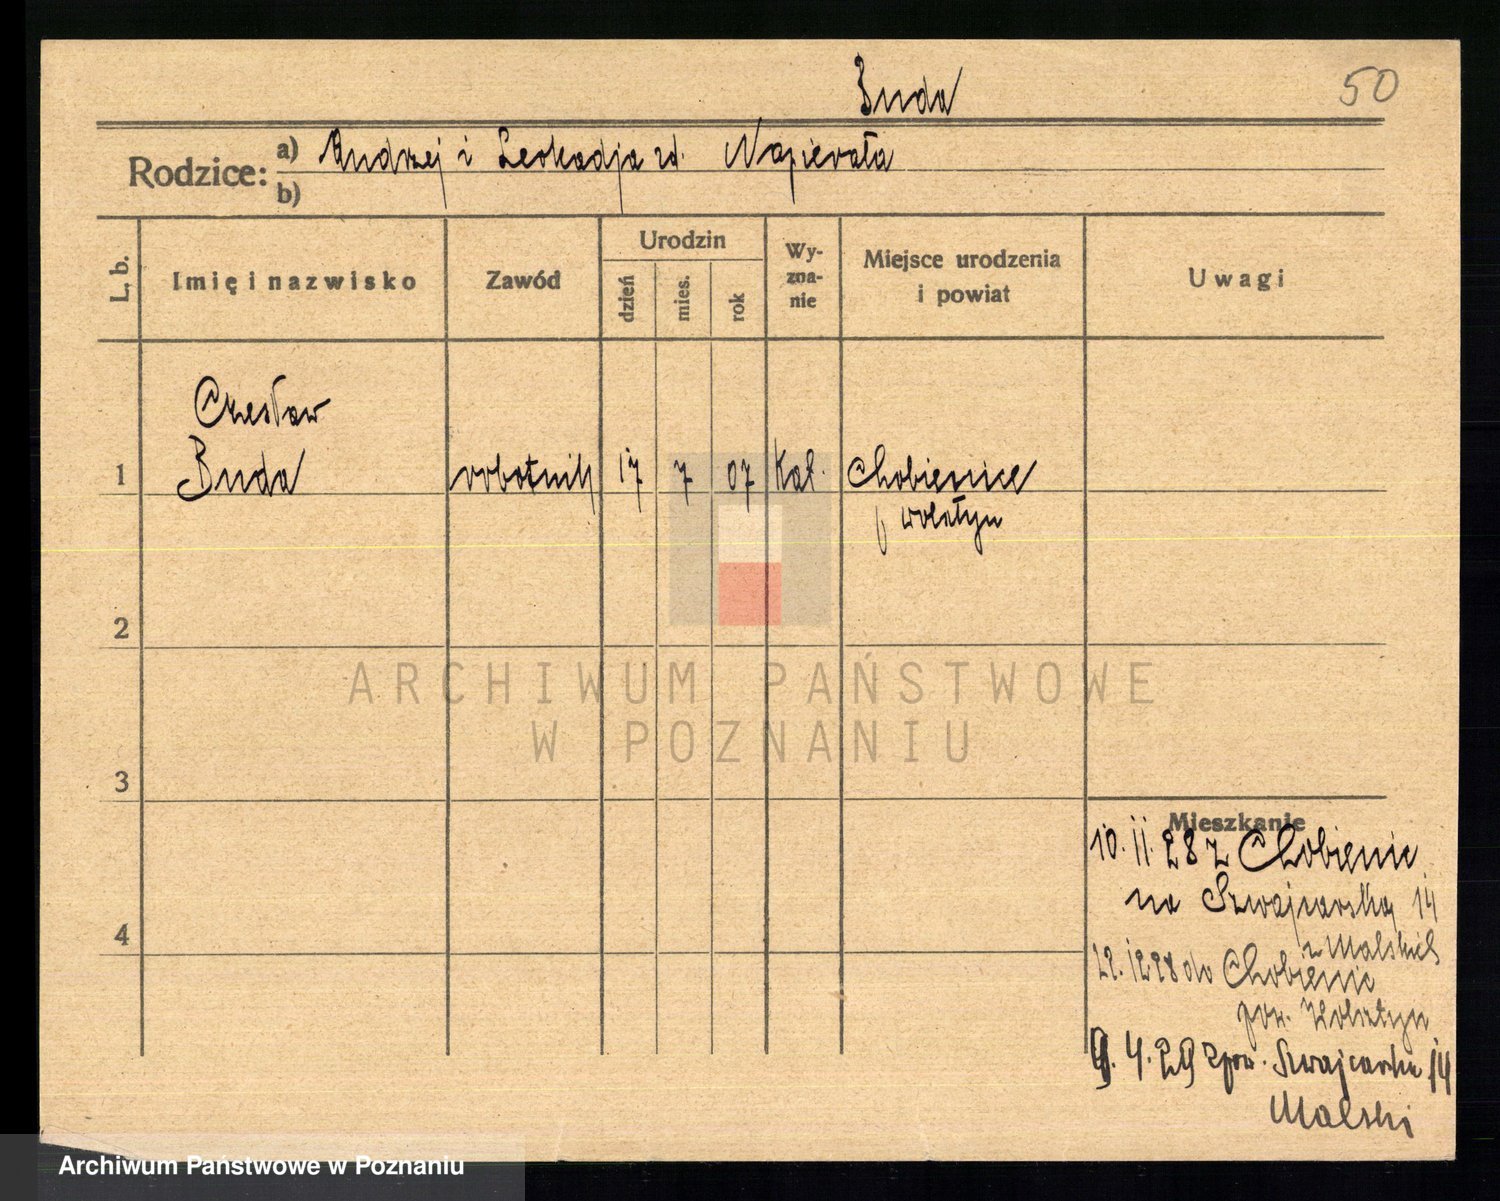 Buda
50
Rodzice: a) Andrzej i Leokadja zd. Napierała
b)
L. b.
Imię i nazwisko
Zawód
Urodzin
dzień
mies.
rok
Wy-
zna-
nie
Miejsce urodzenia
i powiat
Uwagi
Czesław
1 Buda robotnik 17 7 07 Kat. Chobienice
p wolsztyn
2
ARCHIWUM PAŃSTWOWE
W POZNANIU
3
Mieszkanie
10. 11. 28 z Chobienic
na Szwajcarską 14
z Malskich
22. 12 28 do Chobienic
pow. Wolsztyn
9. 4. 29 zpow. Szwajcarska 14
Malski
4
Archiwum Państwowe w Poznaniu